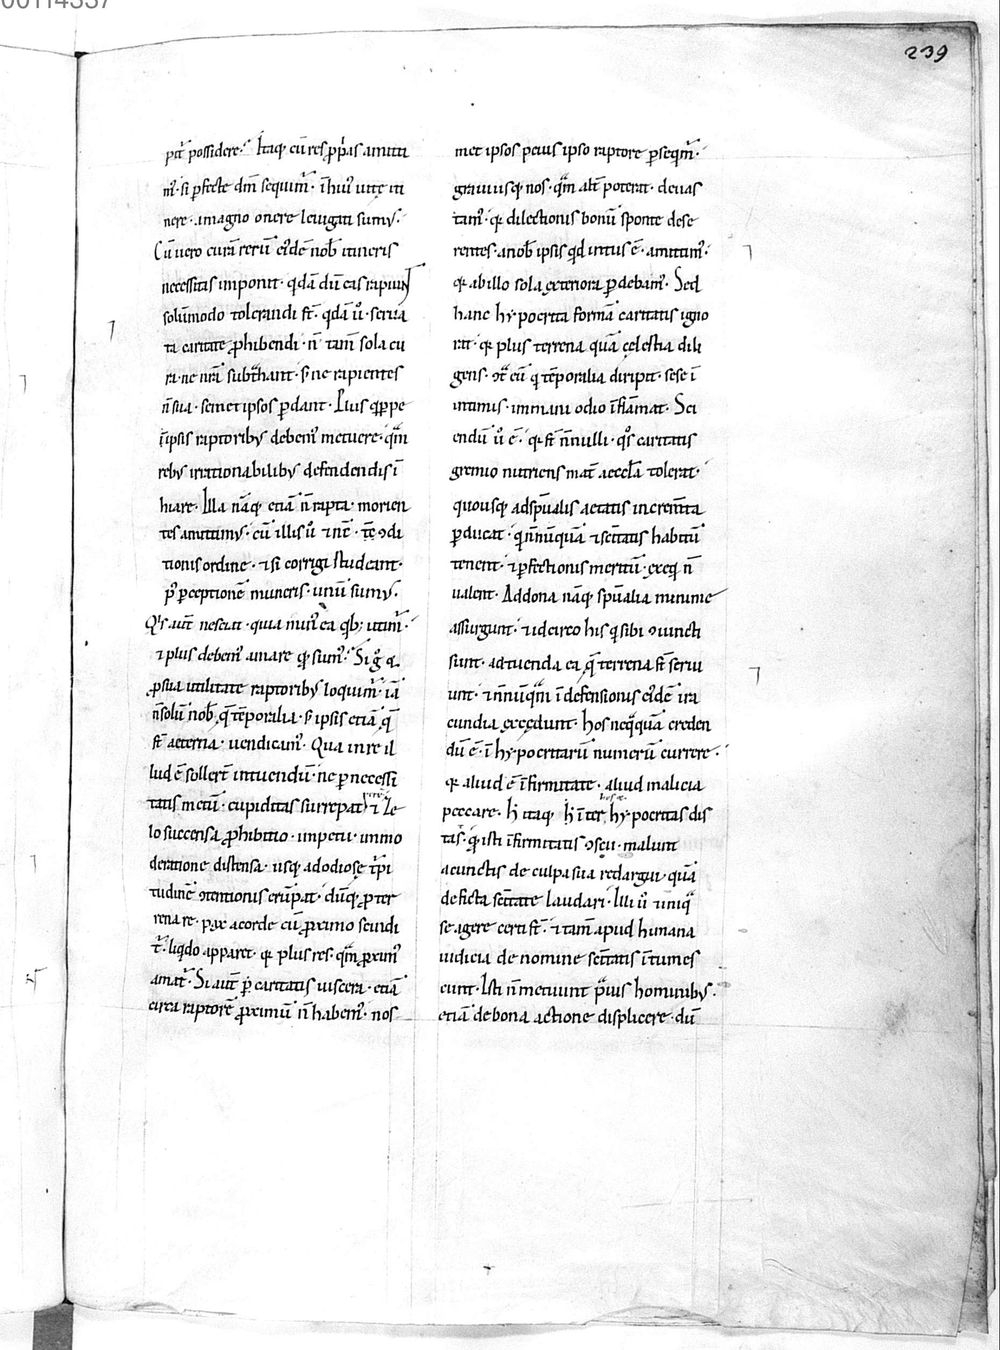 239
pt̄ possidere. Itaq; cū res ꝓp̄as amitti
mꝰ. si ꝑfecte dm̄ sequimꝰ. ī huiꝰ uitę iti
nere. a magno onere leuigati sumꝰ.
Cū uero curā rerū eiꝰdē nob̄ itineris
necessitas imponit. qdā dū eas rapiunt
solūmodo tolerandi st̄. qdā ū. serua
ta caritate ꝓhibendi. n̄ tam̄ sola cu
ra. ne nrā subt̄hant. s; ne rapientes
n̄ sua. semet ipsos ꝑdant. Plus q̄ppe
ī ipsis raptoribꝰ debemꝰ metuere. qm̄
rebꝰ irrationabilibꝰ defendendis ī
hiare. Illa nāq; etiā n̄ rapta. morien
tes amittimꝰ. cū illis ū ⁊ nc̄. ⁊ ꝯdi
tionis ordine. ⁊ si corrigi studeant.
p̄ ꝑceptionē muneris. unū sumꝰ.
Qis aut̄ nesciat. quia minꝰ ea qb; utimꝰ.
⁊ plus debemꝰ amare qd̄ sumꝰ. Si g̊ ⁊
ꝓ sua utilitate raptoribꝰ loquimꝰ. iā
n̄ solū nob̄. q̄ tēporalia. s; ipsis etiā q̄
st̄ aeterna. uendicamꝰ. Qua in re il
lud ē sollert̄ intuendū. ne ꝑ necessi
tatis metū. cupiditas surrepat. ⁊ ze
lo succensa ꝓhibitio. impetu inmo
deratione distensa. usq; ad odiosę t̄pi
tudinē ꝯtentionis erūpat. dūq; ꝓ ter
rena re. pax a corde cū ꝓximo scindi
t̄. liqdo apparet. qd plus res. qm̄ ꝓximꝰ
amat̄. Si aut̄ p̄ caritatis uiscera. etiā
circa raptorē ꝓximū n̄ habemꝰ. nos
met ipsos peius ipso raptore ꝑseqmꝰ.
grauiusq; nos. qm̄ alt̄ poterat. deuas
tamꝰ. qd dilectionis bonū sponte dese
rentes. a nob̄ ipsis qd intus ē. amittimꝰ.
qd ab illo sola exteriora ꝑdebamꝰ. Sed
hanc hypocrita formā caritatis igno
rat. qd plus terrena quā cęlestia dili
gens. ꝯt̄ eū q tēporalia diripit. sese ī
intimis. inmani odio īflāmat. Sci
endū ū ē. qd st̄ n̄nulli. qs caritatis
gremio nutriens mat̄ aeccl̄a tolerat.
quousq; ad sp̄ualis aetatis incrementa
ꝑducat. q n̄nūquā ⁊ sc̄itatis habitū
tenent. ⁊ ꝑfectionis meritū. exeq n̄
ualent. Ad dona nāq; sp̄ualia minime
assurgunt. ⁊ idcirco his q sibi ꝯiuncti
sunt. ad tuenda ea q̄ terrena st̄ serui
unt. ⁊ n̄nūqm̄ ī defensionis eiꝰdē ira
cundia excędunt. hos neqquā creden
dū ē. ī hypocritarū numerū currere.
qd aliud ē īfirmitate. aliud malicia
peccare. h̄ itaq; h̄ īter hypocritas dis
tat. qd isti īfirmitatis ꝯscii. malunt
a cunctis de culpa sua redargui. quā
de ficta sc̄itate laudari. Illi ū ⁊ iniq
se agere certi st̄. ⁊ tam̄ apud humana
iudicia de nomine sc̄itatis ītumes
cunt. Isti n̄ metuunt p̄uis hominibꝰ.
etiā de bona actione displicere. dū